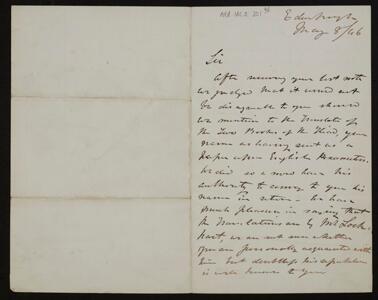 Edinburgh
May 8/46
Sir
After receiving your last note
we judged that it would not
be disagreeable to you should
we mention to the Translator of
the Two Books of the Iliad, your
name as having sent us a
Paper upon English Hexameters.
We did so & now have his
authority to convey to you his
name in return – we have
much pleasure in saying that
the Translations are by Mr Lock-
hart, we are not sure whether
you are personally acquainted with
him but doubtless his reputation
is well known to you